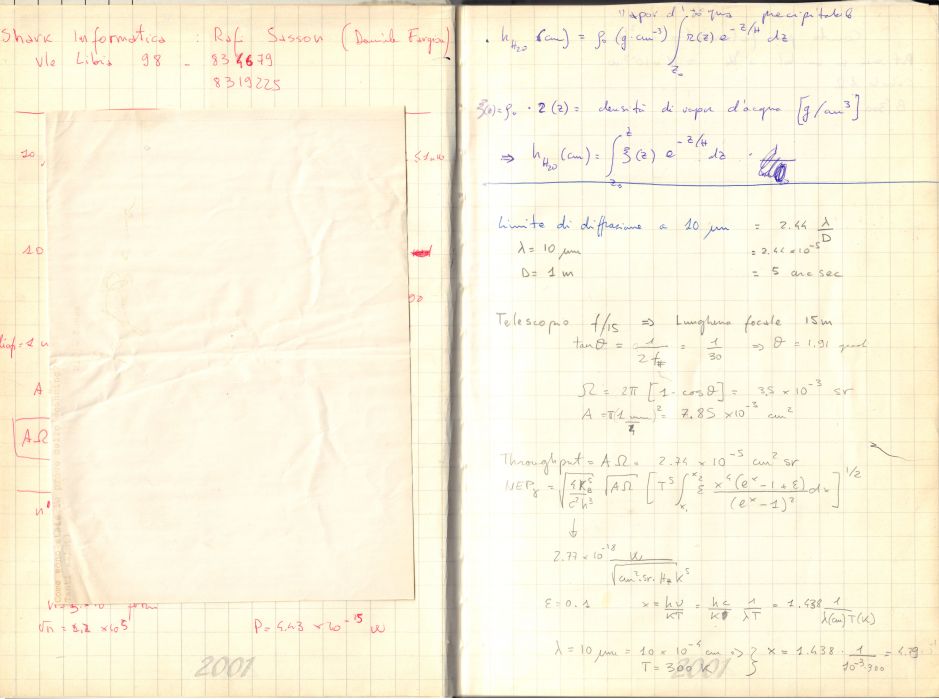 Shark Informatica : Raf Sasson (Daniele Fargion)
Vle Libia 98 - 834679
8319225
10
10
A
AΩ
√n = 8,2 ×10⁵ P = 4.43 ×10⁻¹⁵ W
2001
Vapor d'acqua precipitabile
h_H₂O (cm) = ρ₀ (g·cm⁻³) ∫_z₀^z r(z) e^(-z/H) dz
ξ(z) = ρ₀ · r(z) = densità di vapor d'acqua [g/cm³]
⇒ h_H₂O (cm) = ∫_z₀^z ξ(z) e^(-z/H) dz
Limite di diffrazione a 10 μm = 2.44 λ/D
λ = 10 μm = 2.44 ×10⁻⁵
D = 1 m = 5 arcsec
Telescopio f/15 ⇒ Lunghezza focale 15m
tanθ = 1/(2 f#) = 1/30 ⇒ θ = 1.91 gradi
Ω = 2π [1 - cosθ] = 3.5 × 10⁻³ sr
A = π(1 mm)²/4 = 7.85 ×10⁻³ cm²
Throughput = AΩ = 2.74 × 10⁻⁵ cm² sr
NEP_γ = √(4K_B⁵/c²h³) √AΩ [T⁵ ∫_x₁^x₂ ε x⁴(eˣ-1+ε)/(eˣ-1)² dx]^1/2
↓
2.77 ×10⁻¹⁸ W/√(cm² · sr · Hz K⁵)
ε = 0.1 x = hν/KT = hc/K 1/λT = 1.438 1/(λ(cm)T(K))
λ = 10 μm = 10 × 10⁻⁴ cm ⇒ } x = 1.438 · 1/(10⁻³·300) = 4.79
T = 300 K
2001